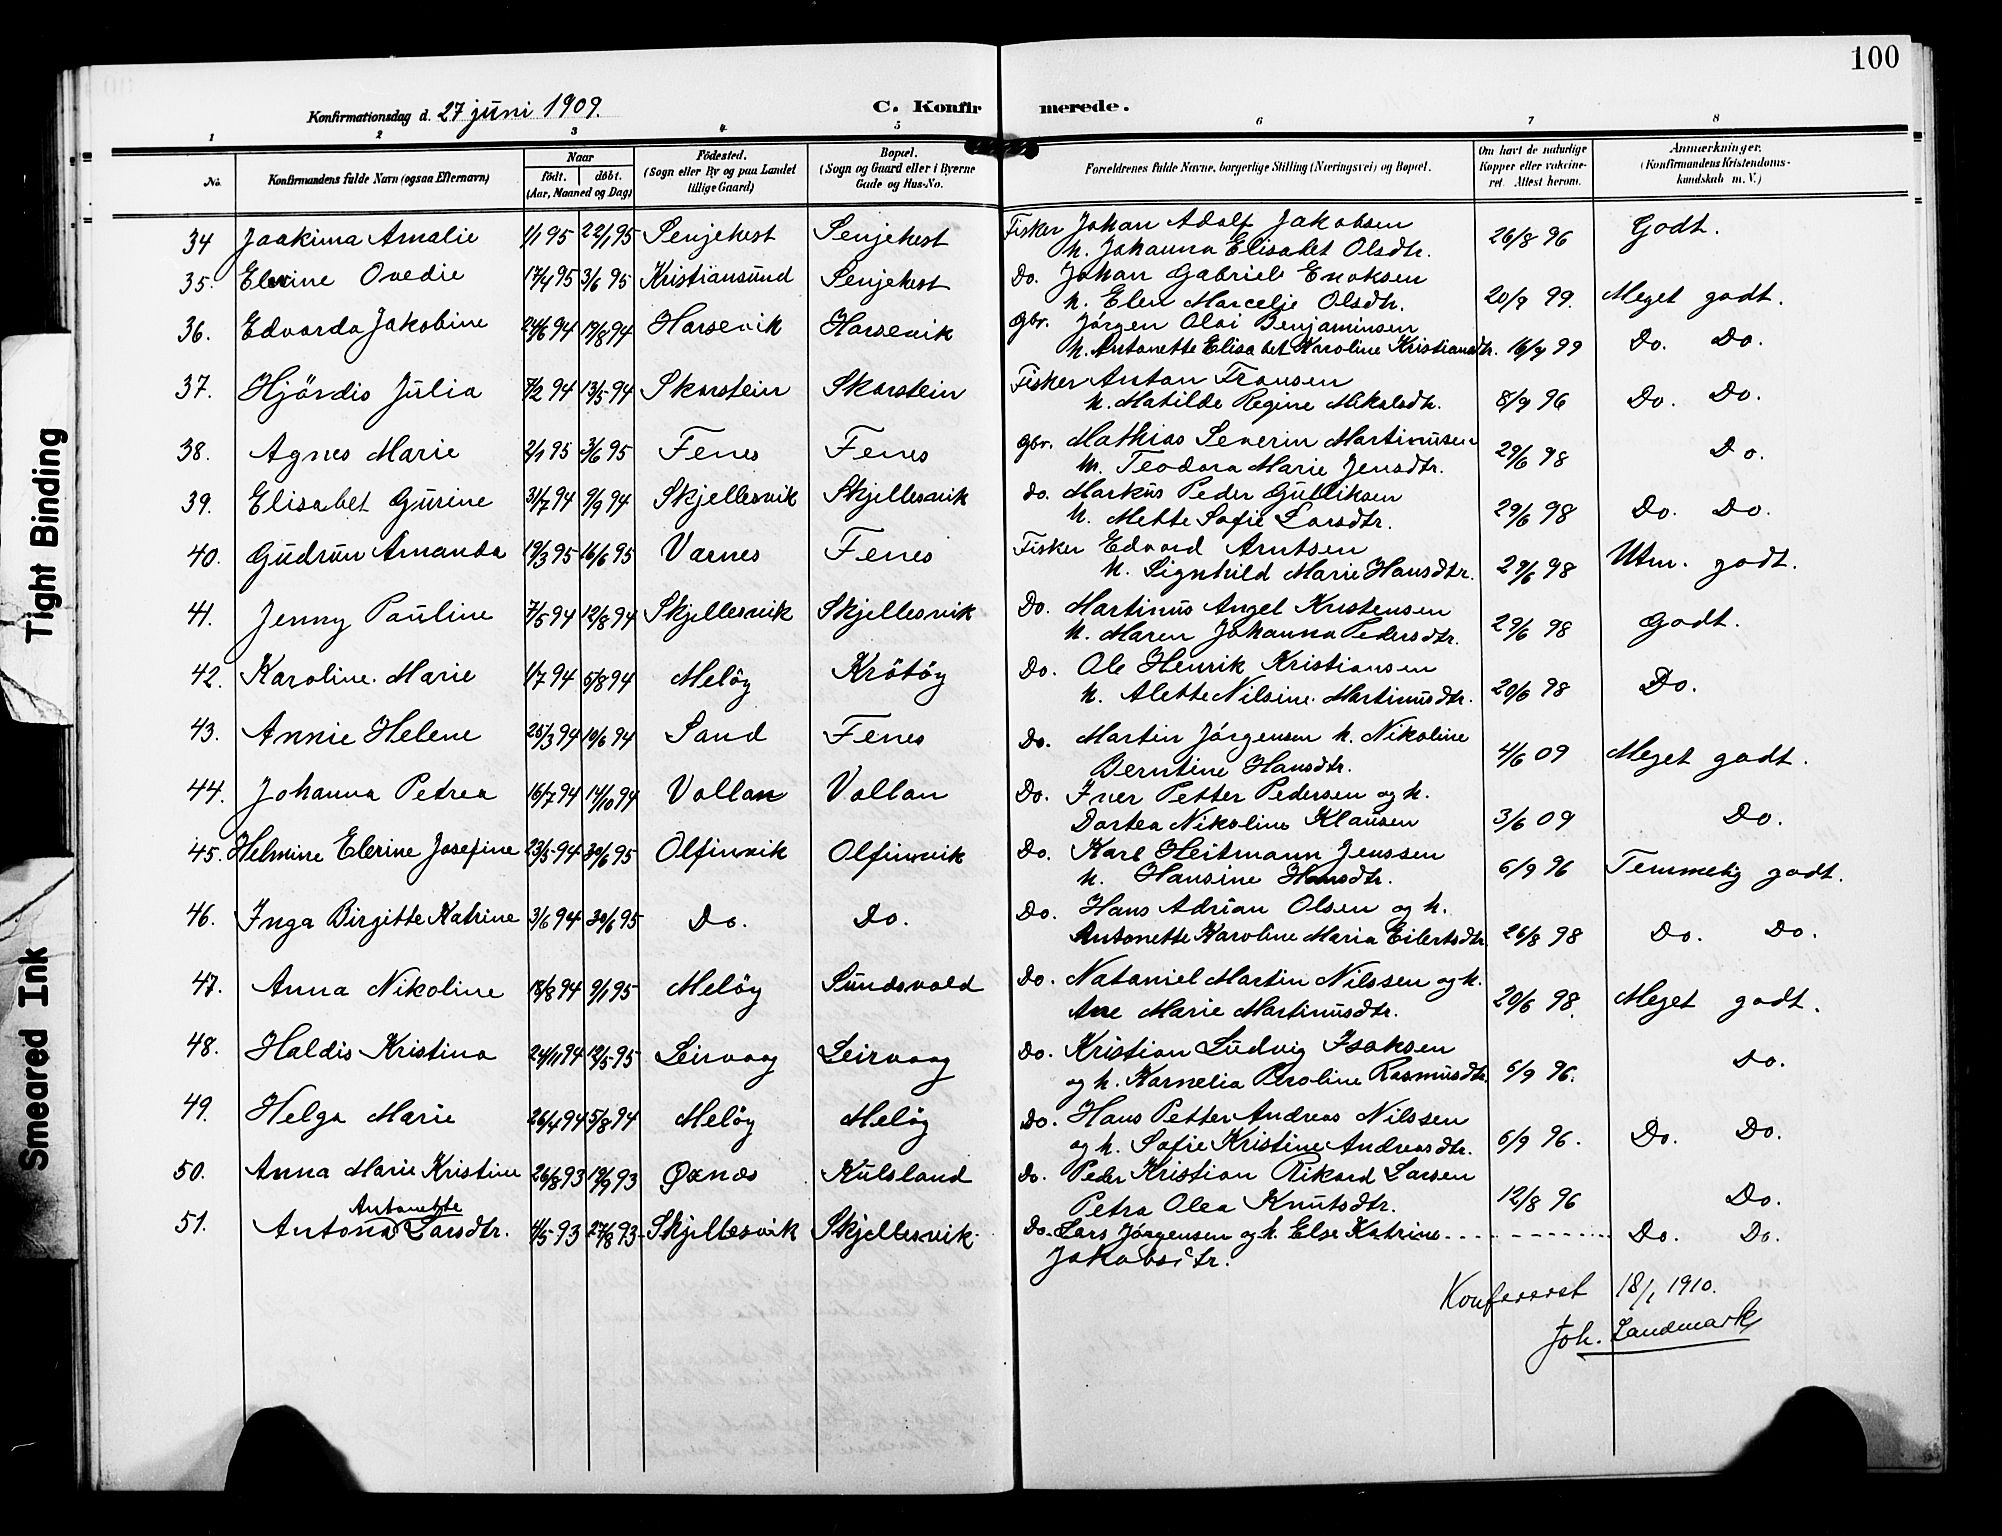 100
Konfirmationsdag d. 27 juni 1909.
C. Konfirmerede.
1 2 3 4 5 6 7 8
No. Konfirmandens fulde Navn (ogsaa Efternavn) Naar født. døbt. (Aar, Maaned og Dag) Födested. (Sogn eller By og paa Landet tillige Gaard) Bopæl. (Sogn og Gaard eller i Byerne Gade og Hus-No. Forældrenes fulde Navne, borgerlige Stilling (Næringsvei) og Bopæl. Om havt de naturlige Kopper eller vaccineret. Attest herom. Anmærkninger. (Konfirmandens Kristendomskundskab m. V.)
34 Joakima Amalie 1/1 95 22/1 95 Senjehest Senjehest Fisker Johan Adolf Jakobsen 26/8 96 Godt.
h. Johanna Elisabet Olsdtr.
35. Elerine Ovedie 17/4 95 3/6 95 Kristiansund Senjehest Do. Johan Gabriel Enoksen 20/9 99. Meget godt.
h. Elen Marcelje Olsdtr.
36. Edvarda Jakobine 24/6 94 19/8 94 Harsevik Harsevik Gbr. Jørgen Olai Benjaminsen
h. Antonette Elisabet Karoline Kristiansdtr. 16/9 99 Do. Do.
37. Hjördis Julia 7/2 94 13/5 94 Skarstein Skarstein Fisker Anton Fransen
h. Matilde Regine Mikalsdtr. 8/9 96 Do. Do.
38. Agnes Marie 2/1 95 3/6 95 Fenes Fenes Gbr. Mathias Severin Martinusen 29/6 98 Do.
h. Teodora Marie Jensdtr.
39. Elisabet Gurine 31/7 94 9/9 94 Skjellesvik Skjellesvik do. Markus Peder Gulliksen 29/6 98 Do. Do.
h. Mette Sofie Larsdtr.
40. Gudrun Amanda 19/3 95 16/6 95 Værnes Fenes Fisker Edvard Arntsen 29/6 98 Utm. godt.
h. Signhild Marie Hansdtr.
41. Jenny Pauline 7/5 94 12/8 94 Skjellesvik Skjellesvik Do. Martinus Angel Kristensen 29/6 98 Godt.
h. Maren Johanna Pedersdtr.
42. Karoline Marie 1/7 94 5/8 94 Meløy Krötöy Do. Ole Henrik Kristiansen 20/6 98 Do.
h. Alette Nilsine Martinusdtr.
43. Annie Helene 25/3 94 10/6 94 Sand Fenes Do. Martin Jørgensen h. Nikoline 4/6 09 Meget godt.
Berntine Hansdtr.
44. Johanna Petrea 16/7 94 14/10 94 Vollan Vollan Do. Iver Petter Pedersen og h. 3/6 09 Do.
Dortea Nikoline Klausen
45. Helmine Elerine Josefine 23/5 94 30/6 95 Olfinvik Olfinvik Do. Karl Heitmann Jenssen 6/9 96 Temmelig godt.
h. Hansine Hansdtr.
46. Inga Birgitte Katrine 3/6 94 30/6 95 Do. Do. Do. Hans Adrian Olsen og h.
Antonette Karoline Maria Eilertsdtr 26/8 98 Do. Do.
47. Anna Nikoline 18/8 94 9/1 95 Meløy Sundsvold Do. Nataniel Martin Nilssen og h. 20/6 98. Meget godt.
Ane Marie Martinusdtr.
48. Haldis Kristina 24/11 94 12/5 95 Leirvaag Leirvaag Do. Kristian Ludvig Isaksen 6/9 96. Do.
og h. Karnelia Peroline Rasmusdtr.
49. Helga Marie 26/4 94 5/8 94 Meløy Meløy Do. Hans Petter Andreas Nilssen 6/9 96. Do. Do.
og h. Sofie Kristine Andreasdtr.
50. Anna Marie Kristine 26/8 93 19/9 93 Øxnes Kulsland Do. Peder Kristian Rikard Larsen 12/8 96 Do.
Petra Olea Knutsdtr.
Antonette
51. Antona Larsdtr. 4/5 93 27/8 93 Skjellesvik Skjellesvik. Do. Lars Jørgensen og h. Else Katrine Do. Do.
Jakobsdtr.
Konfereret 18/1 1910.
Joh. Landmark
Tight Binding
Smeared Ink